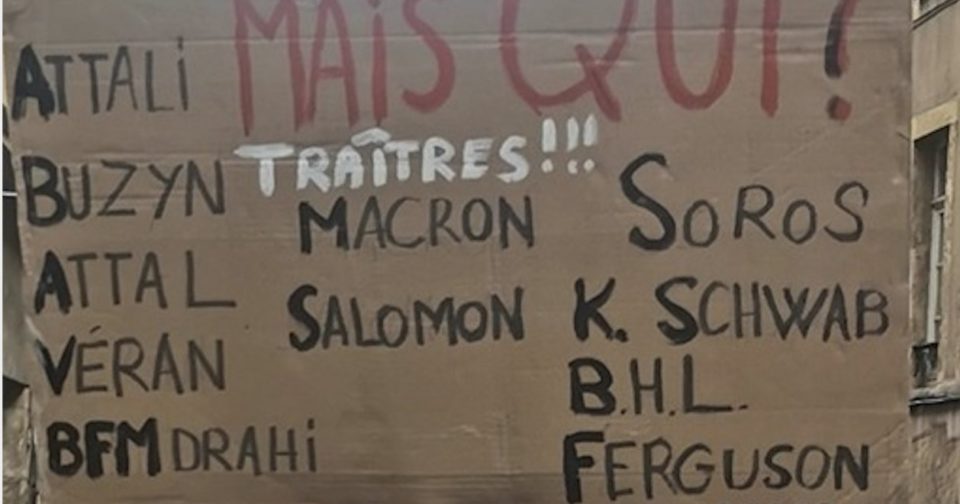 MAIS QUI?
TRAÎTRES!!!
ATTALI
BUZYN
ATTAL
VÉRAN
BFM DRAHI
MACRON
SALOMON
SOROS
K. SCHWAB
B.H.L.
FERGUSON